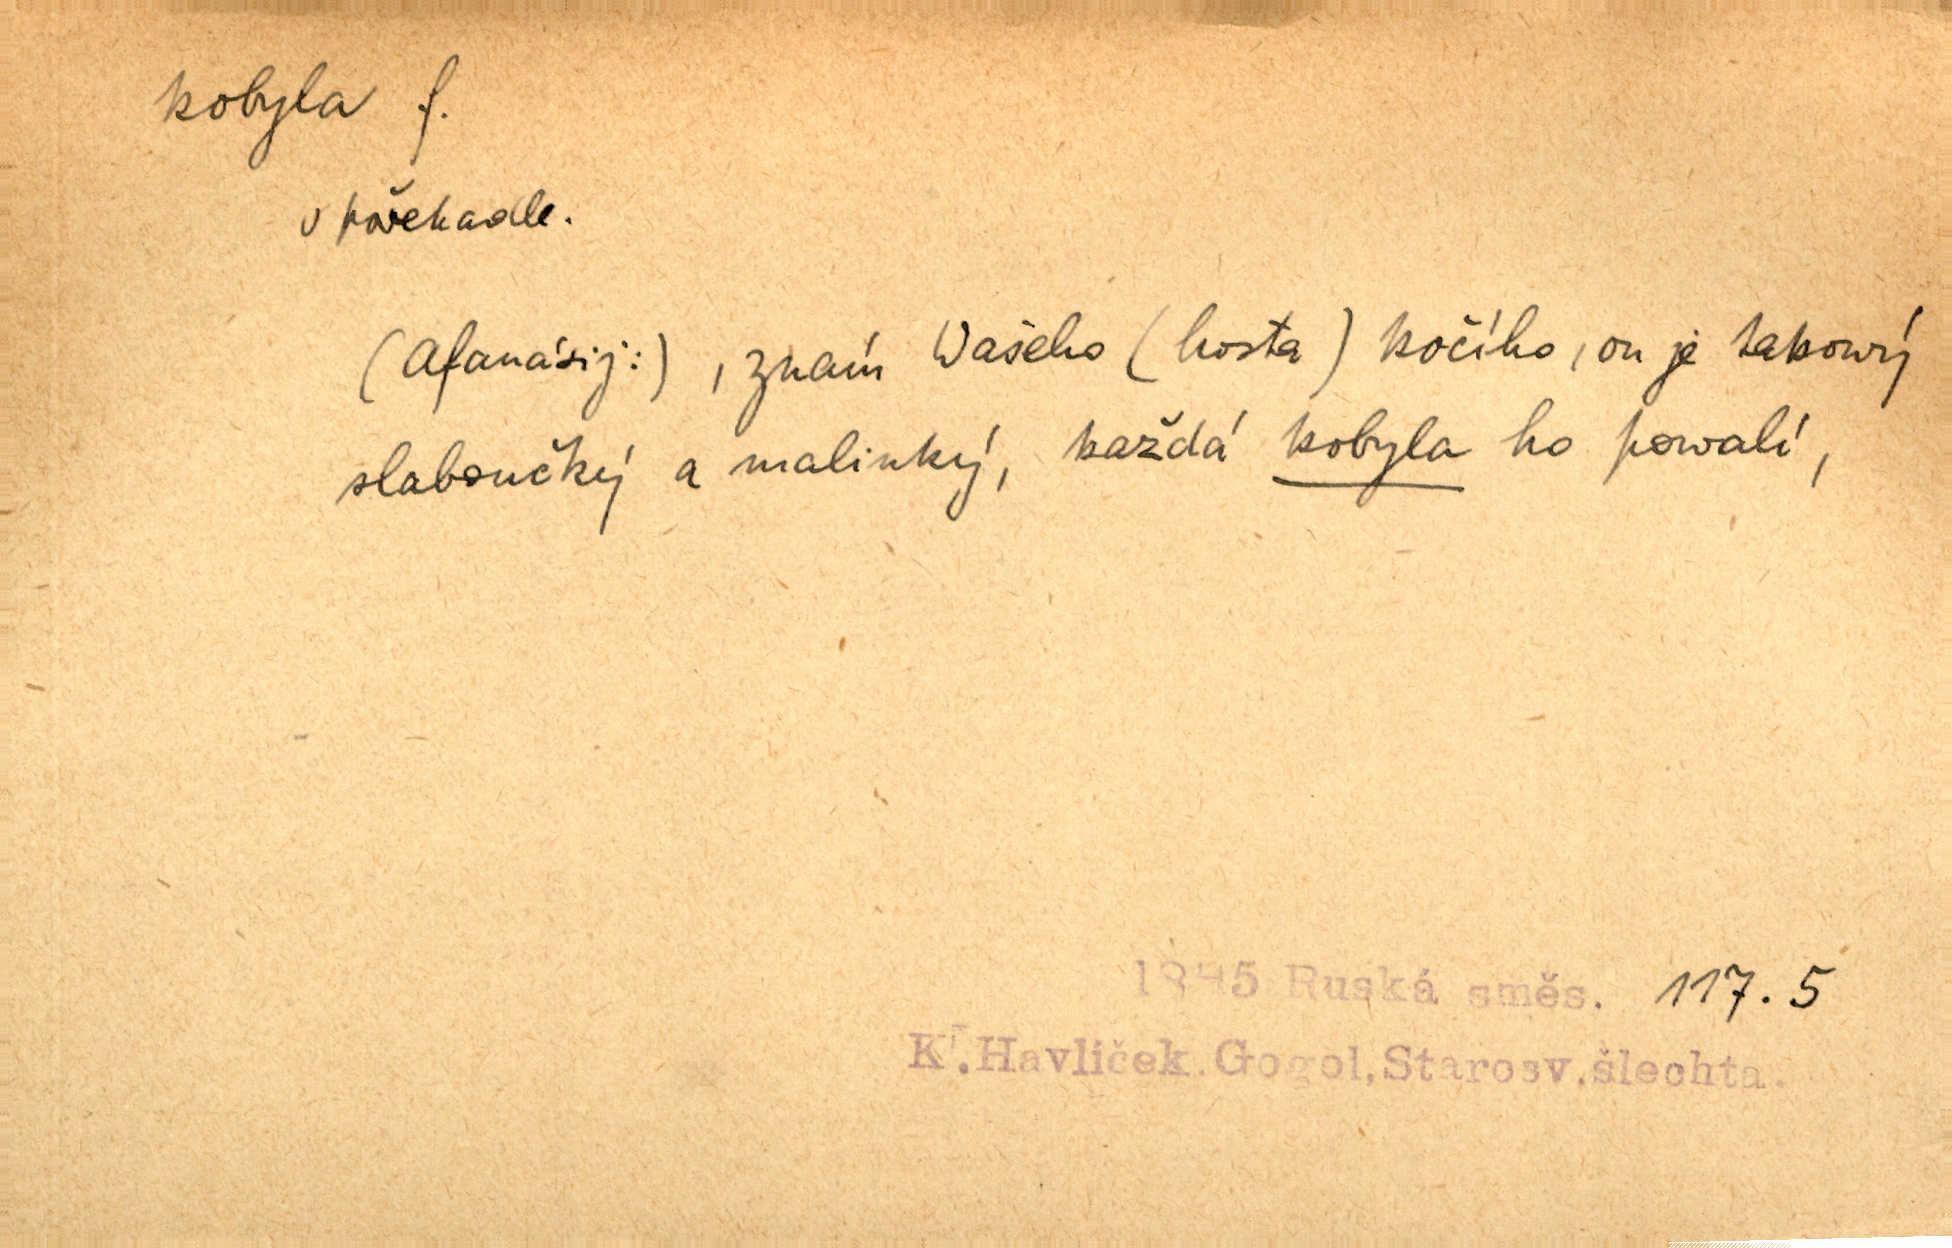 kobyla f.
v pořekadle.
(Afanásij:) , znám Wašeho (hosta) kočího, on je takowý
slaboučký a malinký, každá kobyla ho powalí,
1845 Ruská směs. 117. 5
K. Havlíček. Gogol, Starosv. šlechta.